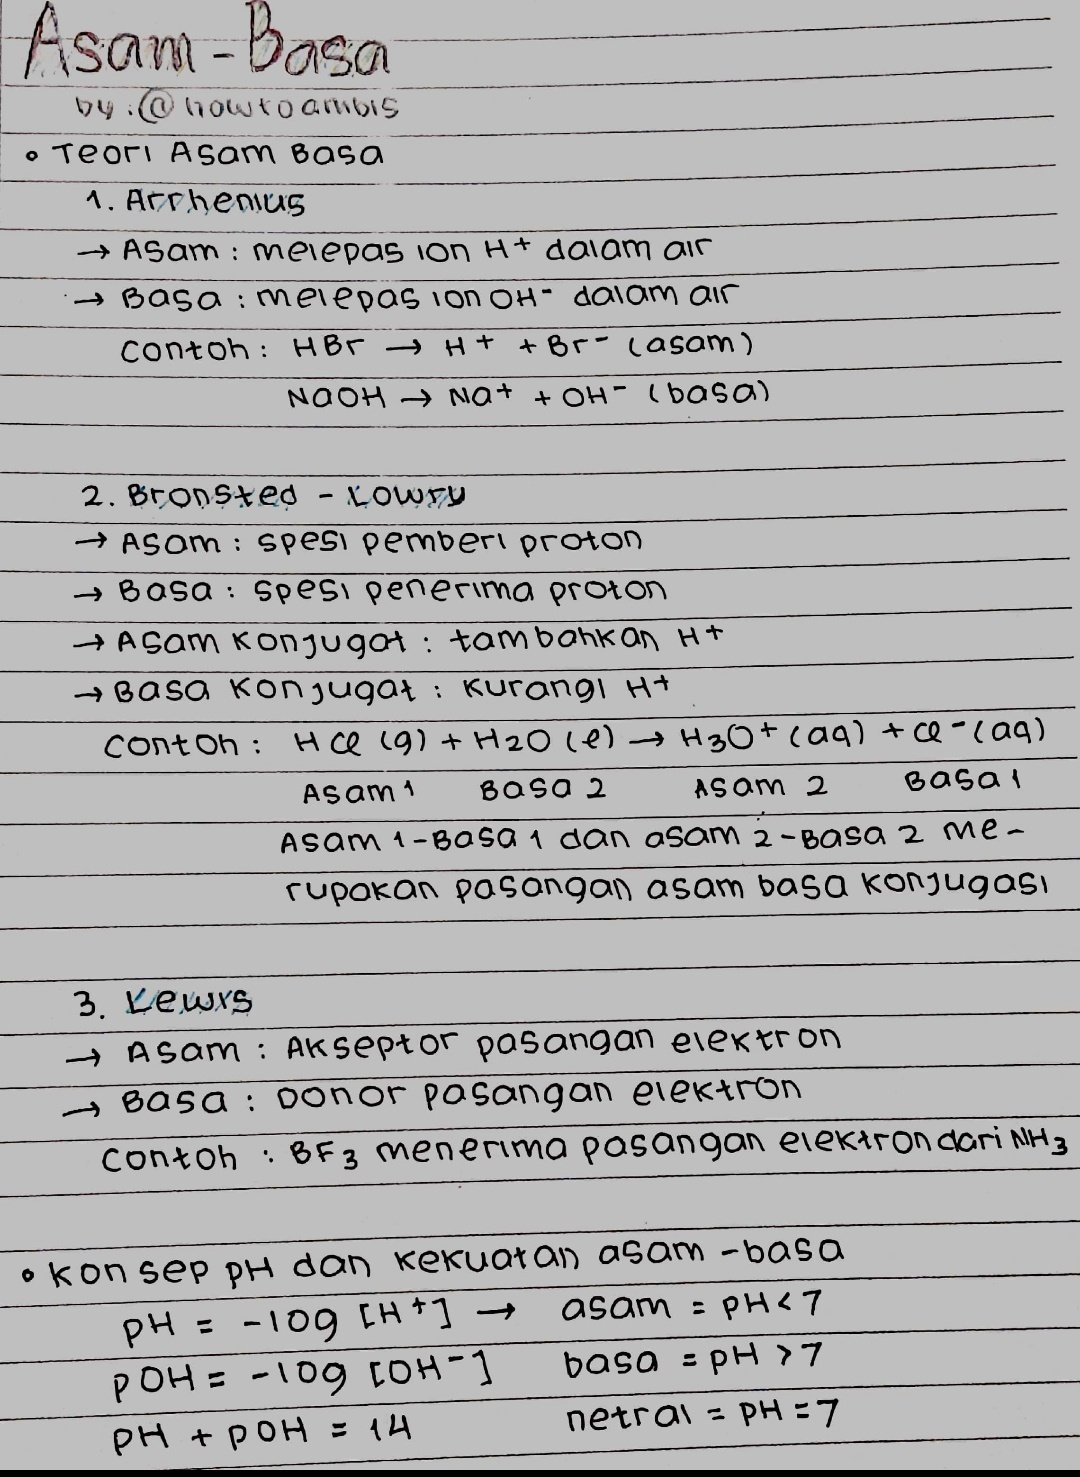 Asam - Basa
by : @howtoambis
• Teori Asam Basa
1. Arrhenius
→ Asam : melepas ion H+ dalam air
→ Basa : melepas ion OH- dalam air
Contoh : HBr → H+ + Br- (asam)
NaOH → Na+ + OH- (basa)
2. Bronsted - Lowry
→ Asam : spesi pemberi proton
→ Basa : spesi penerima proton
→ Asam Konjugat : tambahkan H+
→ Basa Konjugat : Kurangi H+
Contoh : HCl (g) + H2O (l) → H3O+ (aq) + Cl- (aq)
Asam 1 Basa 2 Asam 2 Basa 1
Asam 1-Basa 1 dan asam 2-Basa 2 me-
rupakan pasangan asam basa konjugasi
3. Lewis
→ Asam : Akseptor pasangan elektron
→ Basa : Donor pasangan elektron
Contoh : BF3 menerima pasangan elektron dari NH3
• Konsep pH dan kekuatan asam - basa
pH = -log [H+] → asam = pH < 7
pOH = -log [OH-] basa = pH > 7
pH + pOH = 14 netral = pH = 7